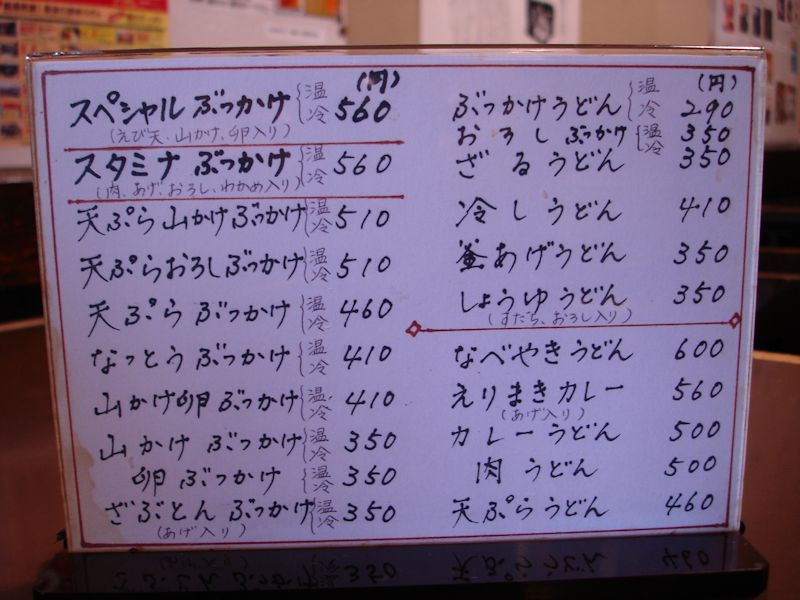 (円)
スペシャル ぶっかけ 温 冷 560
(えび天、山かけ、卵入り)
スタミナ ぶっかけ 温 冷 560
(肉、あげ、おろし、わかめ入り)
天ぷら山かけぶっかけ 温 冷 510
天ぷらおろしぶっかけ 温 冷 510
天ぷら ぶっかけ 温 冷 460
なっとう ぶっかけ 温 冷 410
山かけ卵ぶっかけ 温 冷 410
山かけ ぶっかけ 温 冷 350
卵 ぶっかけ 温 冷 350
ざぶとん ぶっかけ 温 冷 350
(あげ入り)
(円)
ぶっかけうどん 温 冷 290
おろし ぶっかけ 温 冷 350
ざるうどん 350
冷しうどん 410
釜あげうどん 350
しょうゆうどん 350
(すだち、おろし入り)
なべやきうどん 600
えりまきカレー 560
(あげ入り)
カレーうどん 500
肉うどん 500
天ぷらうどん 460